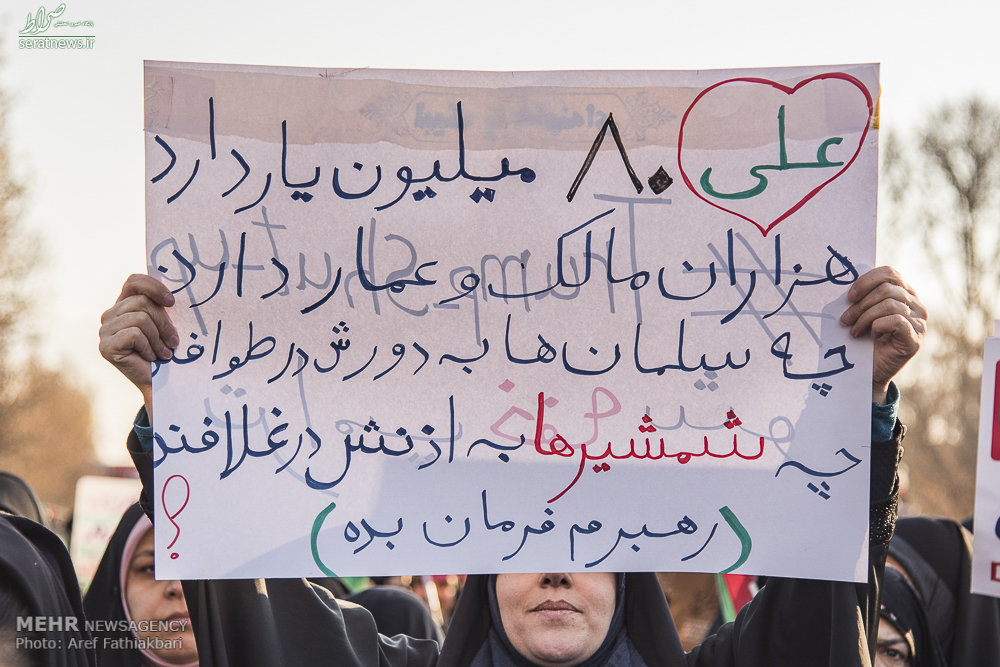 صراط
seratnews.ir
علی ۸۰ میلیون یار دارد
هزاران مالک و عمار دارند
چه سلمان ها به دورش در طوافند
چه شمشیرها به اذنش در غلافند
(رهبرم فرمان بده)
؟
MEHR NEWSAGENCY
Photo: Aref Fathiakbari